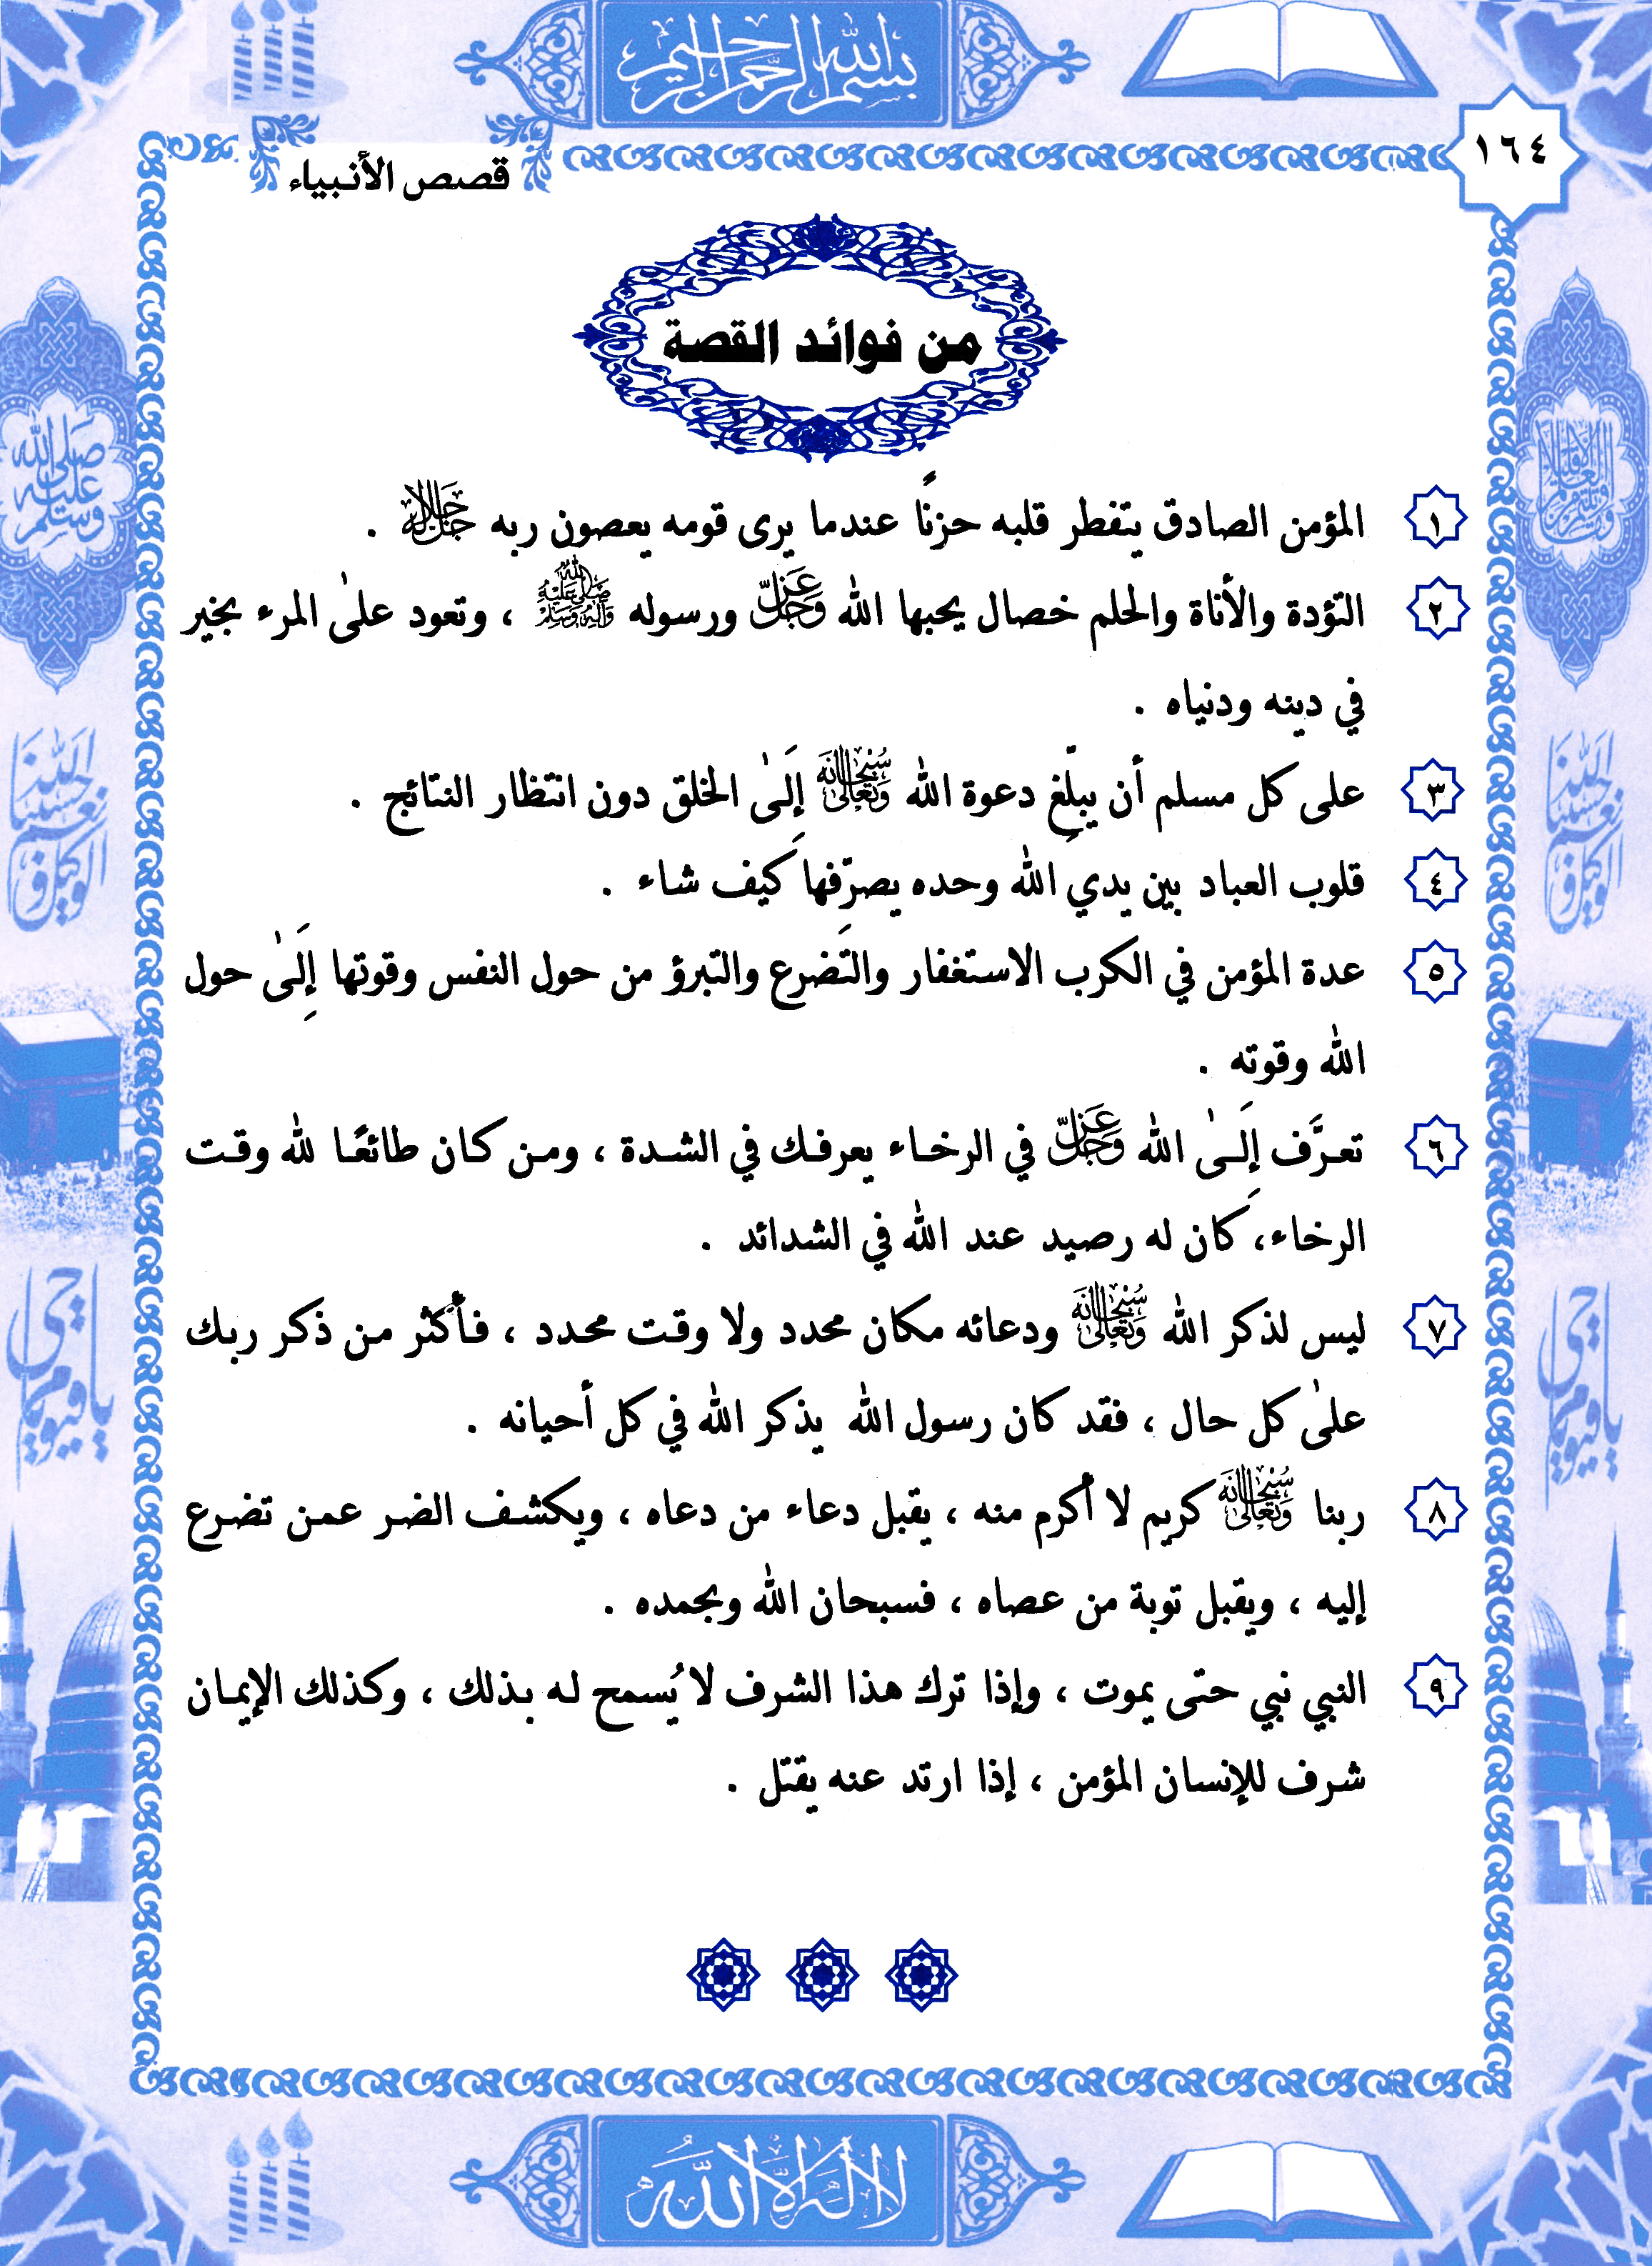 بسم الله الرحمن الرحيم
١٦٤
قصص الأنبياء
من فوائد القصة
١ المؤمن الصادق يتفطر قلبه حزنًا عندما يرى قومه يعصون ربه جل جلاله .
٢ التؤدة والأناة والحلم خصال يحبها الله عز وجل ورسوله صلى الله عليه وآله وسلم ، وتعود علىٰ المرء بخير
في دينه ودنياه .
٣ على كل مسلم أن يبلّغ دعوة الله سبحانه وتعالى إِلَىٰ الخلق دون انتظار النتائج .
٤ قلوب العباد بين يدي الله وحده يصرّفها كيف شاء .
٥ عدة المؤمن في الكرب الاستغفار والتضرع والتبرؤ من حول النفس وقوتها إِلَىٰ حول
الله وقوته .
٦ تعرَّف إِلَىٰ الله عز وجل في الرخاء يعرفك في الشدة ، ومن كان طائعًا لله وقت
الرخاء، كان له رصيد عند الله في الشدائد .
٧ ليس لذكر الله سبحانه وتعالى ودعائه مكان محدد ولا وقت محدد ، فأكثر من ذكر ربك
علىٰ كل حال ، فقد كان رسول الله يذكر الله في كل أحيانه .
٨ ربنا سبحانه وتعالى كريم لا أكرم منه ، يقبل دعاء من دعاه ، ويكشف الضر عمن تضرع
إليه ، ويقبل توبة من عصاه ، فسبحان الله وبحمده .
٩ النبي نبي حتى يموت ، وإذا ترك هذا الشرف لا يُسمح له بذلك ، وكذلك الإيمان
شرف للإنسان المؤمن ، إذا ارتد عنه يقتل .
صلى الله عليه وسلم
الله حسبنا ونعم الوكيل
الله حسبنا ونعم الوكيل
يا حي يا قيوم
يا حي يا قيوم
لا إله إلا الله